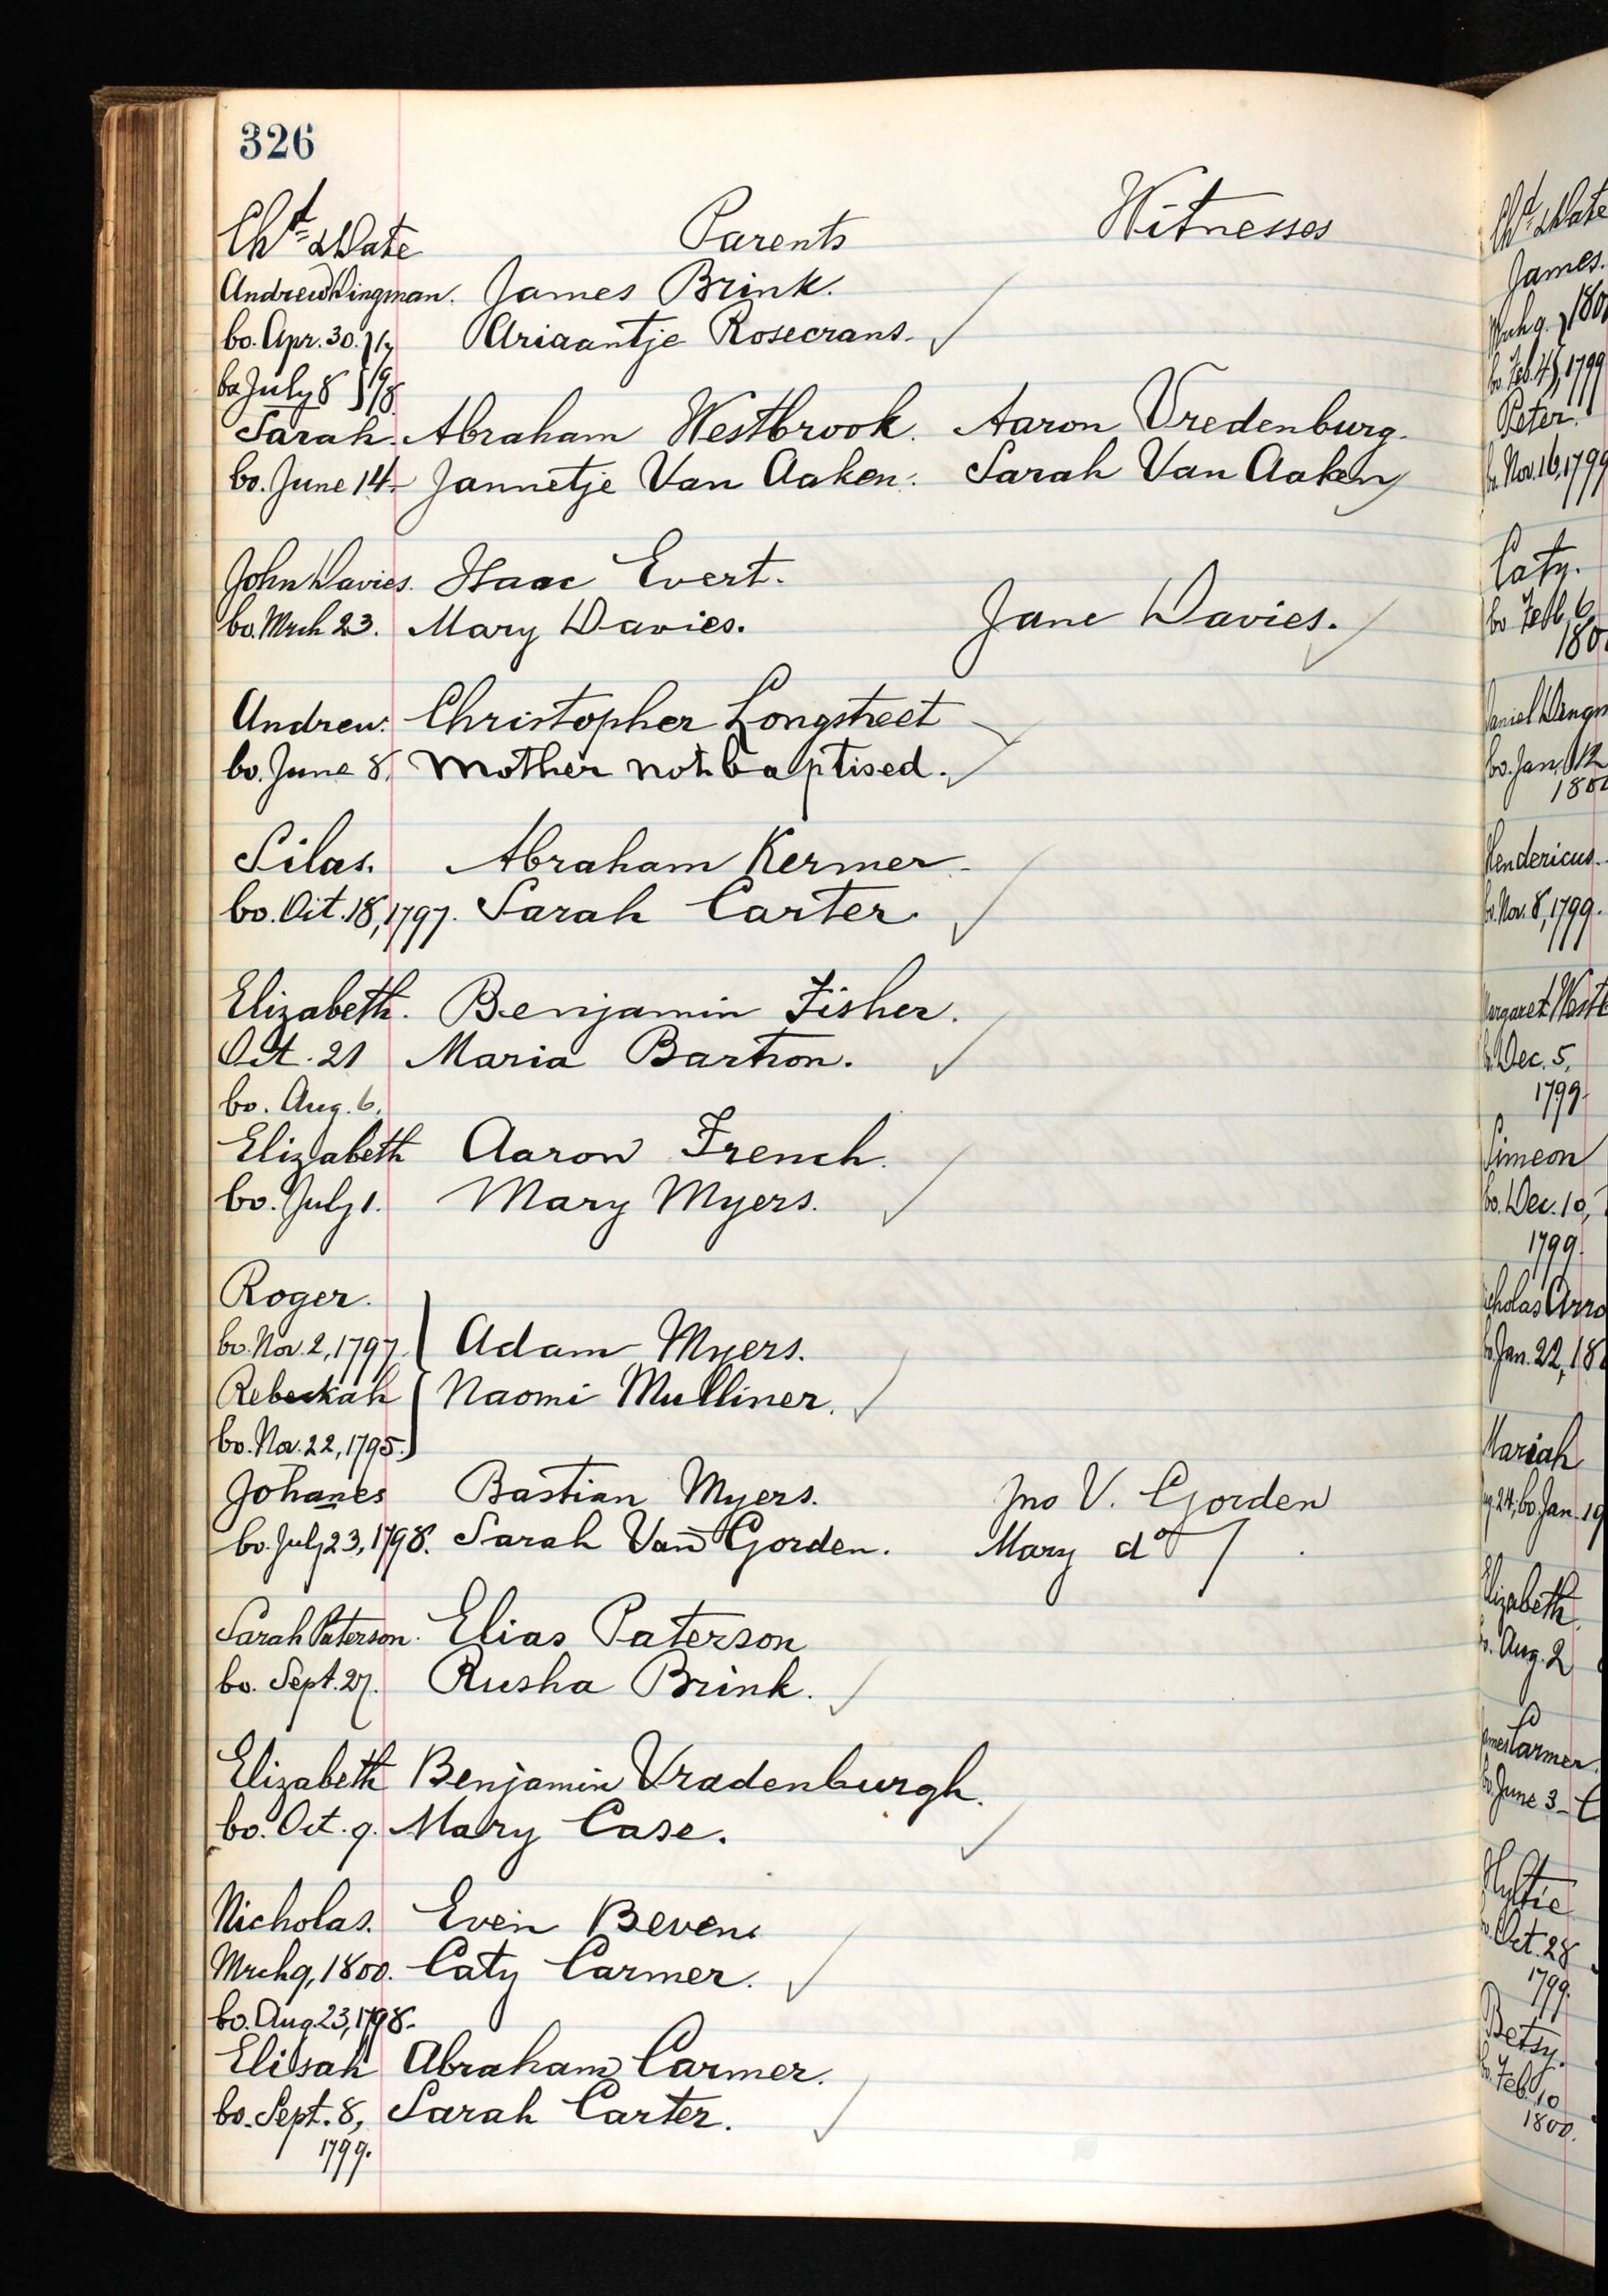 326
Chd & Date Parents Witnesses
Andrew Dingman. James Brink.
bo. Apr. 30. } 17 Ariaantje Rosecrans.
ba July 8 } 98
Sarah. Abraham Westbrook. Aaron Vredenburg.
bo. June 14. Jannetje Van Aaken. Sarah Van Aaken
John Davies. Isaac Evert.
bo. Mrch 23. Mary Davies. Jane Davies.
Andrew. Christopher Longstreet
bo. June 8. Mother not baptised.
Silas. Abraham Kermer.
bo. Oct. 18, 1797. Sarah Carter.
Elizabeth. Benjamin Fisher.
Oct. 21 Maria Bartron.
bo. Aug. 6.
Elizabeth Aaron French.
bo. July 1. Mary Myers.
Roger.
bo. Nov. 2, 1797. } Adam Myers.
Rebeckah { Naomi Mulliner.
bo. Nov. 22, 1795. }
Johanes Bastian Myers. Jno V. Gorden
bo. July 23, 1798. Sarah Van Gorden. Mary do
Sarah Paterson. Elias Paterson
bo. Sept. 27. Rusha Brink.
Elizabeth Benjamin Vradenburgh.
bo. Oct. 9. Mary Case.
Nicholas. Even Beven.
Mrch 9, 1800. Caty Carmer.
bo. Aug. 23, 1798.
Elisah Abraham Carmer.
bo. Sept. 8, Sarah Carter.
1799.
Chd & Date
James.
Peter.
bo. Nov. 16, 1799
Caty.
bo Feb. 6
bo. Jan. 12
Hendericus.
bo. Nov. 8, 1799.
Dec. 5,
1799.
Simeon
bo. Dec. 10,
1799.
Jan. 22, 18
Mariah
Elizabeth.
Aug. 2
Carmer.
June 3
Oct. 28
1799.
Betsy.
bo. Feb. 10
1800.